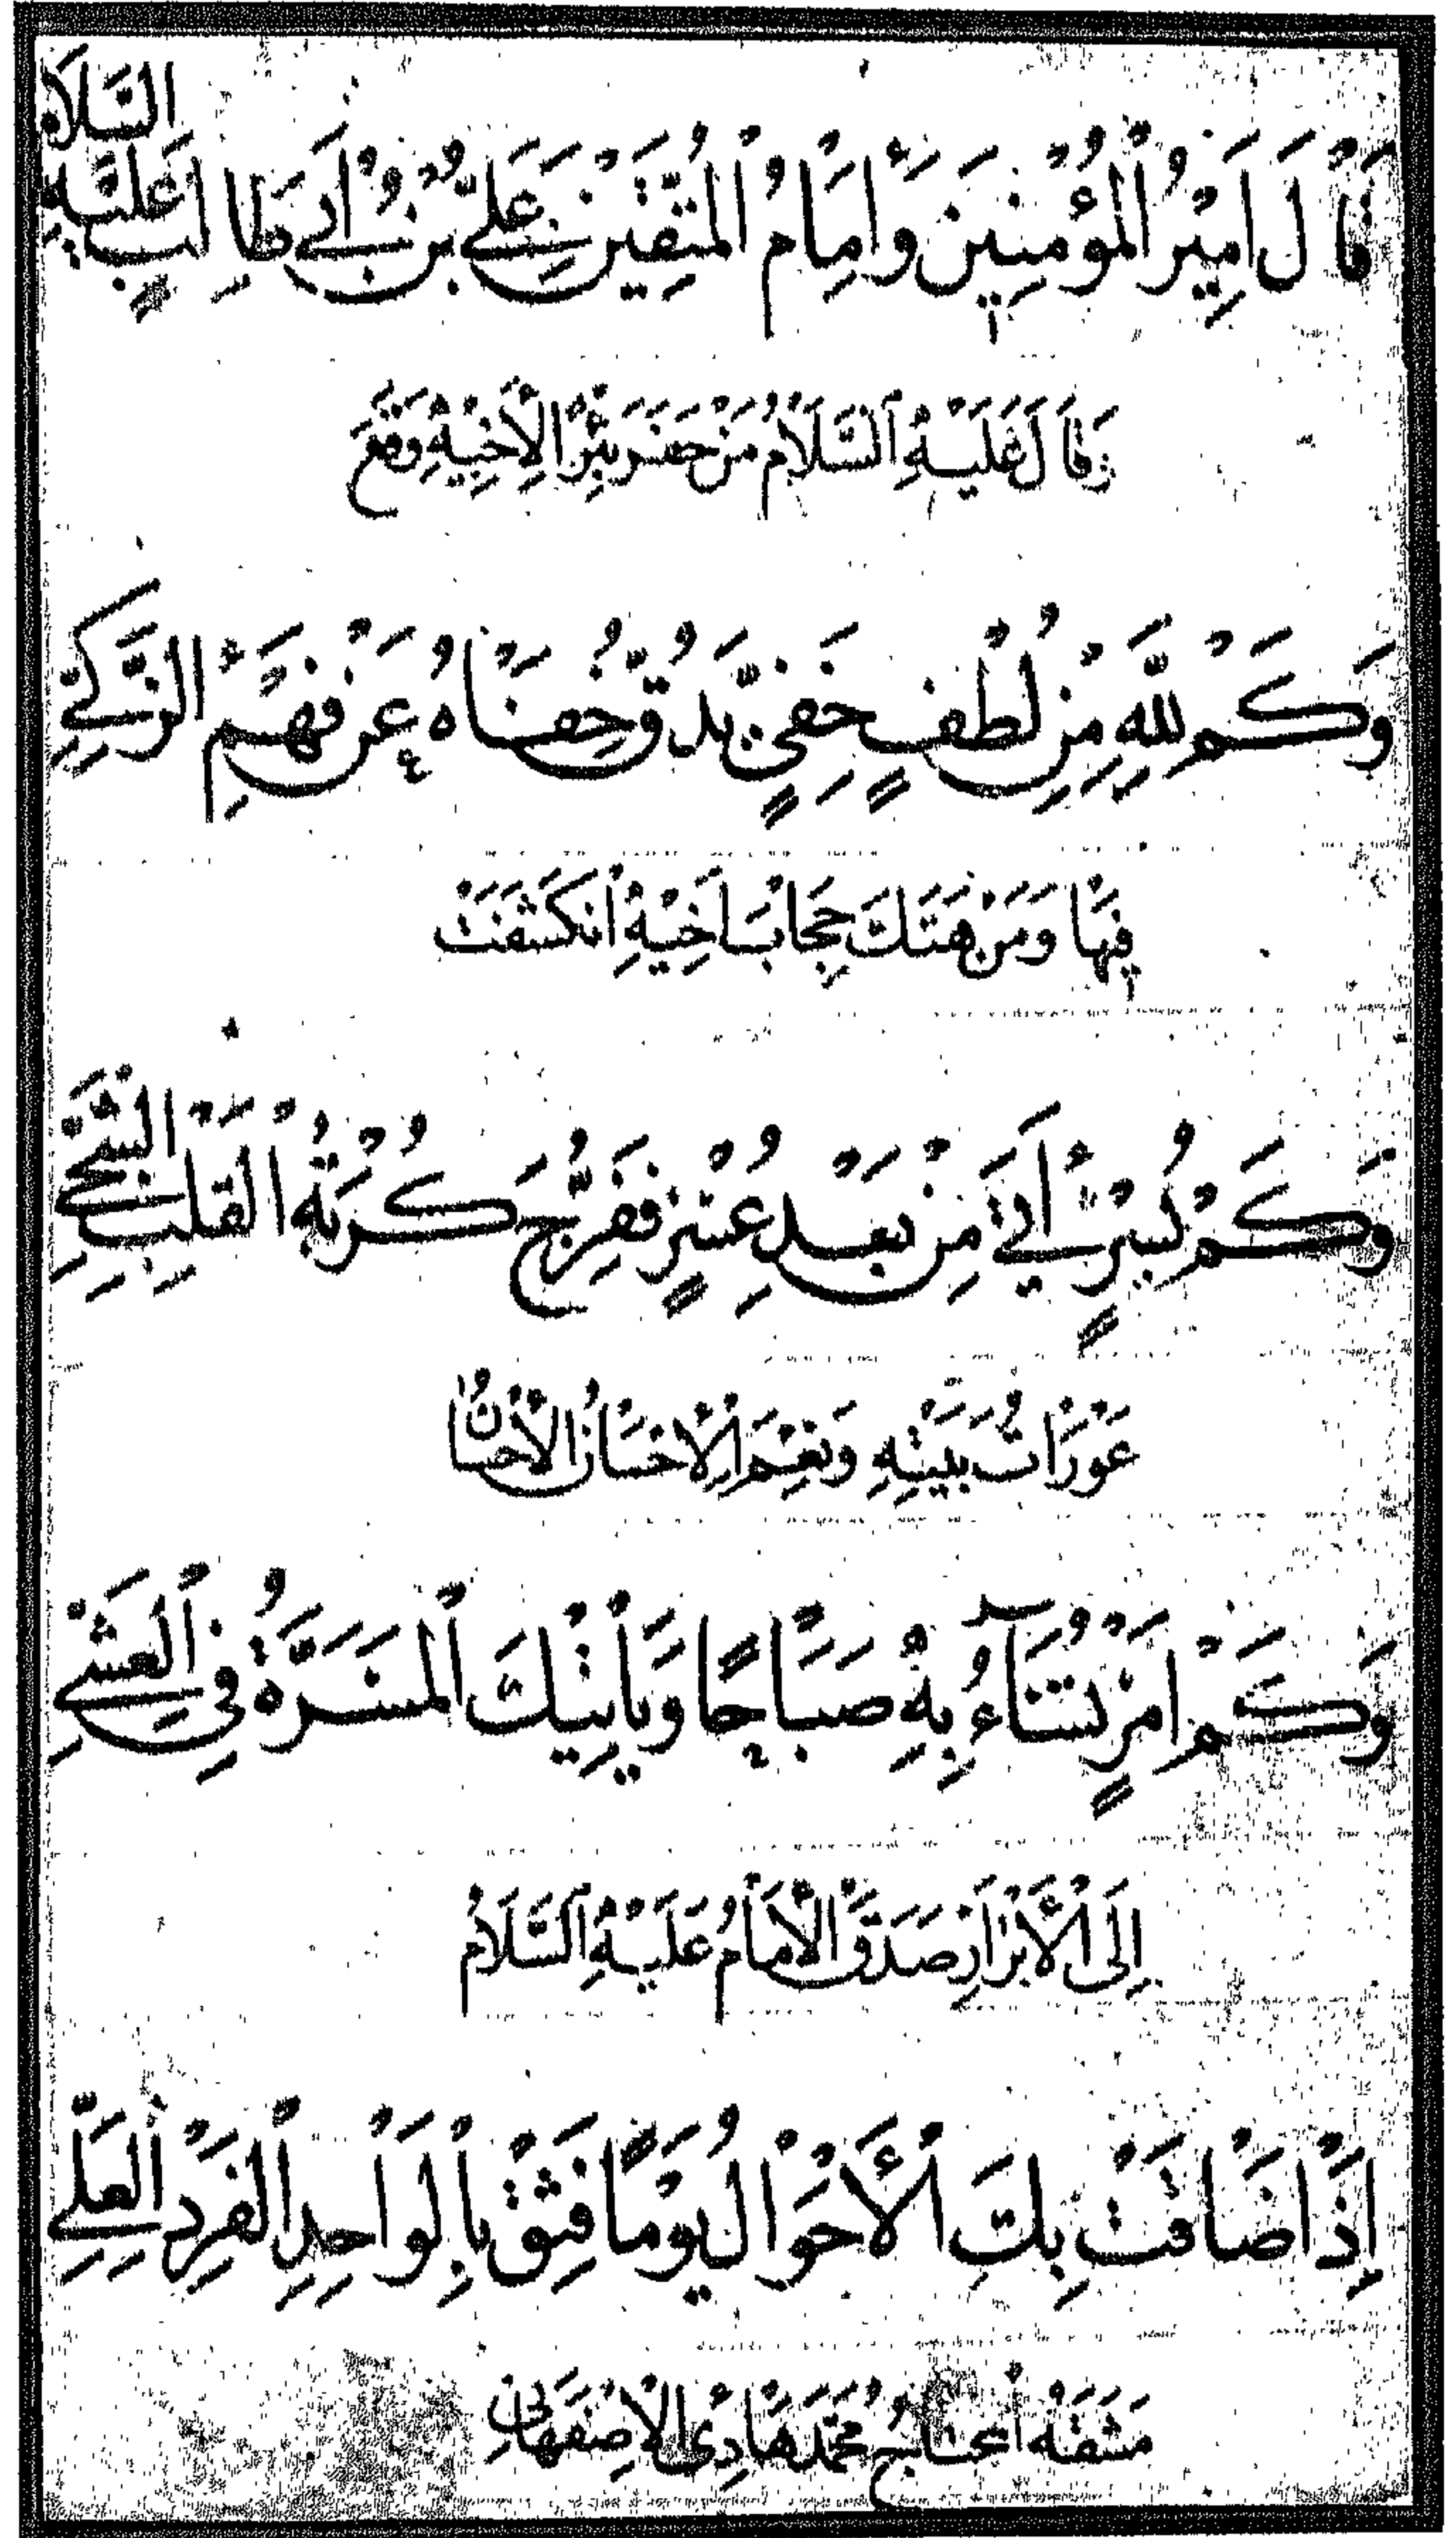 قَالَ اَمِيْرُ الْمُؤْمِنِيْنَ وَاِمَامُ الْمُتَّقِيْنَ عَلِيُّ بْنُ اَبِي طَالِبٍ عَلَيْهِ السَّلَام
وَقَالَ عَلَيْهِ السَّلَامُ مَنْ حَفَرَ بِئْرًا لِاَخِيْهِ وَقَعَ
وَكَمْ لِلّٰهِ مِنْ لُطْفٍ خَفِيٍّ يَدُقُّ خِفَاهُ عَنْ فَهْمِ الزَّكِيِّ
فِيْهَا وَمَنْ هَتَكَ حِجَابَ اَخِيْهِ انْكَشَفَتْ
وَكَمْ يُسْرٍ اَتٰى مِنْ بَعْدِ عُسْرٍ فَفَرَّجَ كُرْبَةَ الْقَلْبِ الشَّجِيِّ
عَوْرَاتُ بَيْتِهِ وَنِعْمَ الْاِحْسَانُ الْاِحْسَانُ
وَكَمْ اَمْرٍ تُسَآءُ بِهِ صَبَاحًا وَيَأْتِيْكَ الْمَسَرَّةُ فِي الْعَشِيِّ
اِلَى الْأَبْرَارِ صَدَقَ الْاِمَامُ عَلَيْهِ السَّلَامُ
اِذَا ضَاقَتْ بِكَ الْأَحْوَالُ يَوْمًا فَثِقْ بِالْوَاحِدِ الْفَرْدِ الْعَلِيِّ
مَشَقَهُ مُحَمَّد هَادِي الْاِصْفَهَانِي